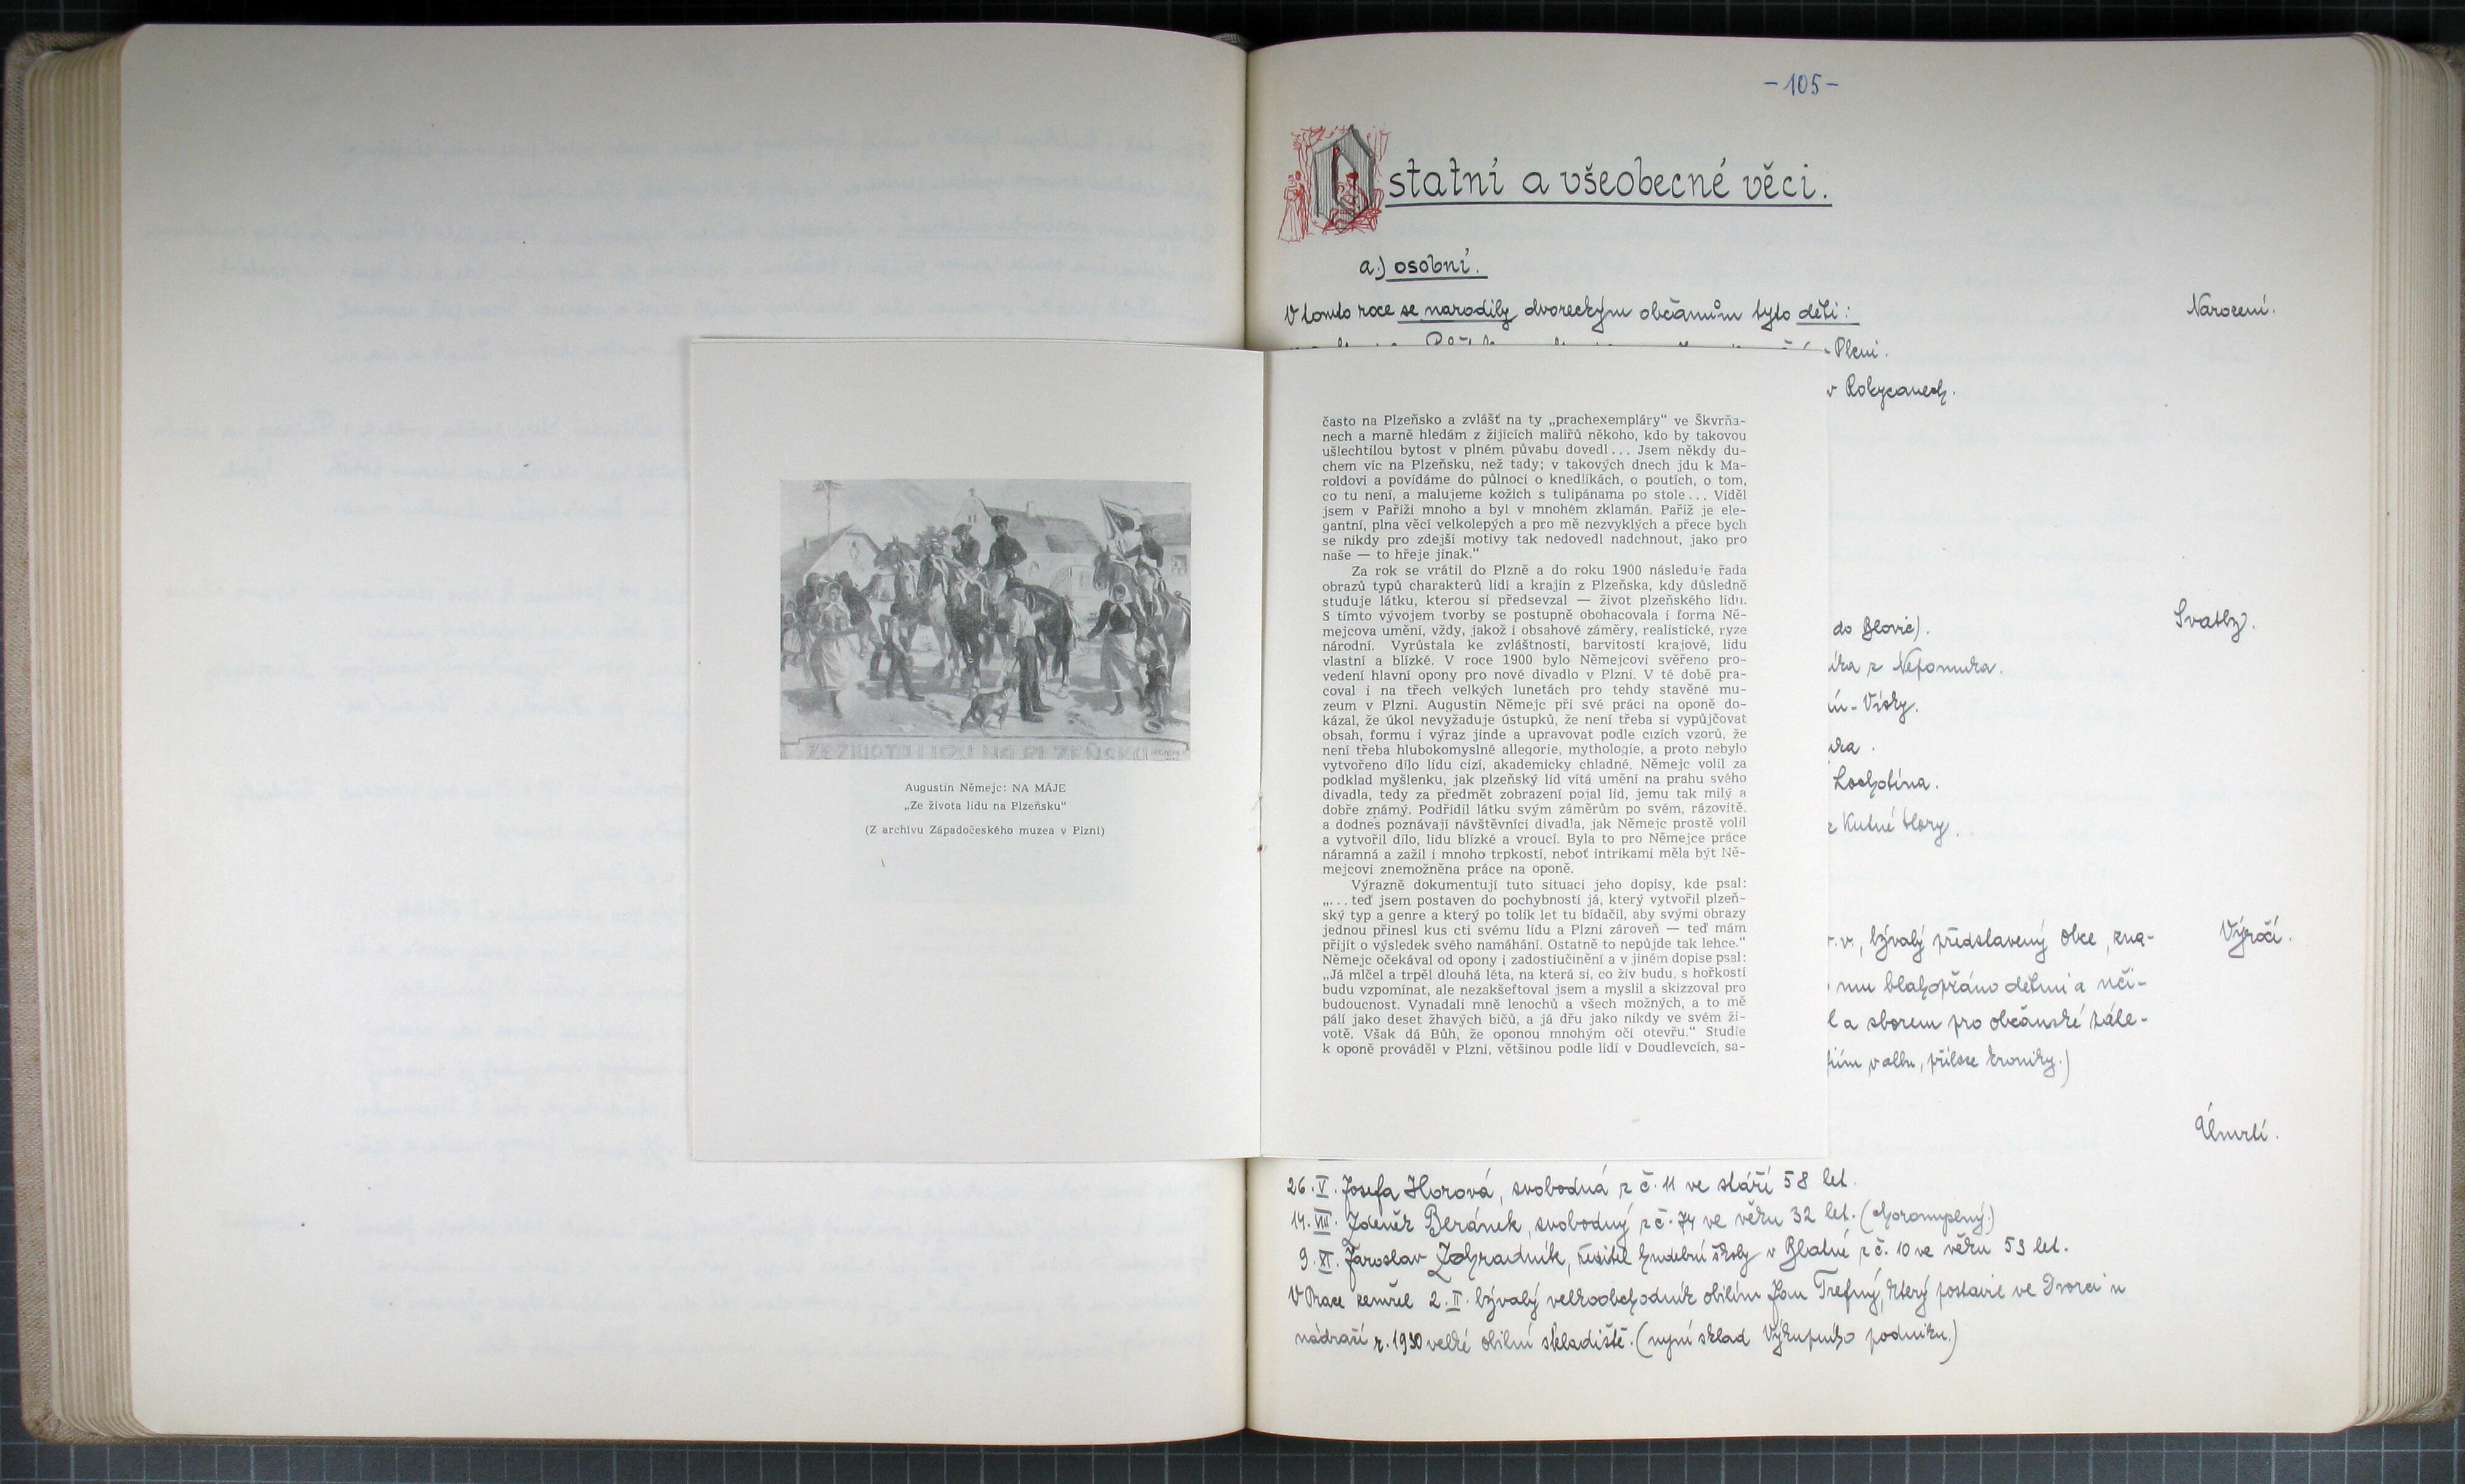 - 105 -
Ostatní a všeobecné věci.
a.) osobní.
V tomto roce se narodily dvoreckým občanům tyto děti:
Narození.
Plzni.
v Rokycanech.
do Blovic).
Svatby.
z Nepomuka.
Lochotína.
z Kutné Hory.
r. v., bývalý představený obce, zna-
Výročí.
mu blahopřáno dětmi a uči-
a sborem pro občanské zále-
v albu, příloze kroniky.)
Úmrtí.
26. V. Josefa Horová, svobodná z č. 11 ve stáří 58 let.
14. VIII. Zdeněk Beránek, svobodný z č. 74 ve věku 32 let. (choromyslný.)
9. XI. Jaroslav Zahradník, ředitel hudební školy v Blatné z č. 10 ve věku 53 let.
V Praze zemřel 2. II. bývalý velkoobchodník obilím Jan Trefný, který postavil ve Dvorci u
nádraží r. 1930 velké obilní skladiště. (nyní sklad Výkupního podniku.)
ZE ŽIVOTA LIDU NA PLZEŇSKU
Augustin Němejc: NA MÁJE
„Ze života lidu na Plzeňsku“
(Z archívu Západočeského muzea v Plzni)
často na Plzeňsko a zvlášť na ty „prachexempláry“ ve Škvrňa-
nech a marně hledám z žijících malířů někoho, kdo by takovou
ušlechtilou bytost v plném půvabu dovedl... Jsem někdy du-
chem víc na Plzeňsku, než tady; v takových dnech jdu k Ma-
roldovi a povídáme do půlnoci o knedlíkách, o poutích, o tom,
co tu není, a malujeme kožich s tulipánama po stole... Viděl
jsem v Paříži mnoho a byl v mnohém zklamán. Paříž je ele-
gantní, plna věcí velkolepých a pro mě nezvyklých a přece bych
se nikdy pro zdejší motivy tak nedovedl nadchnout, jako pro
naše — to hřeje jinak.“
Za rok se vrátil do Plzně a do roku 1900 následuje řada
obrazů typů charakterů lidí a krajin z Plzeňska, kdy důsledně
studuje látku, kterou si předsevzal — život plzeňského lidu.
S tímto vývojem tvorby se postupně obohacovala i forma Ně-
mejcova umění, vždy, jakož i obsahové záměry, realistické, ryze
národní. Vyrůstala ke zvláštnosti, barvitosti krajové, lidu
vlastní a blízké. V roce 1900 bylo Němejcovi svěřeno pro-
vedení hlavní opony pro nové divadlo v Plzni. V té době pra-
coval i na třech velkých lunetách pro tehdy stavěné mu-
zeum v Plzni. Augustin Němejc při své práci na oponě do-
kázal, že úkol nevyžaduje ústupků, že není třeba si vypůjčovat
obsah, formu i výraz jinde a upravovat podle cizích vzorů, že
není třeba hlubokomyslné allegorie, mythologie, a proto nebylo
vytvořeno dílo lidu cizí, akademicky chladné. Němejc volil za
podklad myšlenku, jak plzeňský lid vítá umění na prahu svého
divadla, tedy za předmět zobrazení pojal lid, jemu tak milý a
dobře známý. Podřídil látku svým záměrům po svém, rázovitě,
a dodnes poznávají návštěvníci divadla, jak Němejc prostě volil
a vytvořil dílo, lidu blízké a vroucí. Byla to pro Němejce práce
náramná a zažil i mnoho trpkostí, neboť intrikami měla být Ně-
mejcovi znemožněna práce na oponě.
Výrazně dokumentují tuto situaci jeho dopisy, kde psal:
„... teď jsem postaven do pochybností já, který vytvořil plzeň-
ský typ a genre a který po tolik let tu bídačil, aby svými obrazy
jednou přinesl kus cti svému lidu a Plzni zároveň — teď mám
přijít o výsledek svého namáhání. Ostatně to nepůjde tak lehce.“
Němejc očekával od opony i zadostiučinění a v jiném dopise psal:
„Já mlčel a trpěl dlouhá léta, na která si, co živ budu, s hořkostí
budu vzpomínat, ale nezakšeftoval jsem a myslil a skizzoval pro
budoucnost. Vynadali mně lenochů a všech možných, a to mě
pálí jako deset žhavých bičů, a já dřu jako nikdy ve svém ži-
votě. Však dá Bůh, že oponou mnohým oči otevřu.“ Studie
k oponě prováděl v Plzni, většinou podle lidí v Doudlevcích, sa-